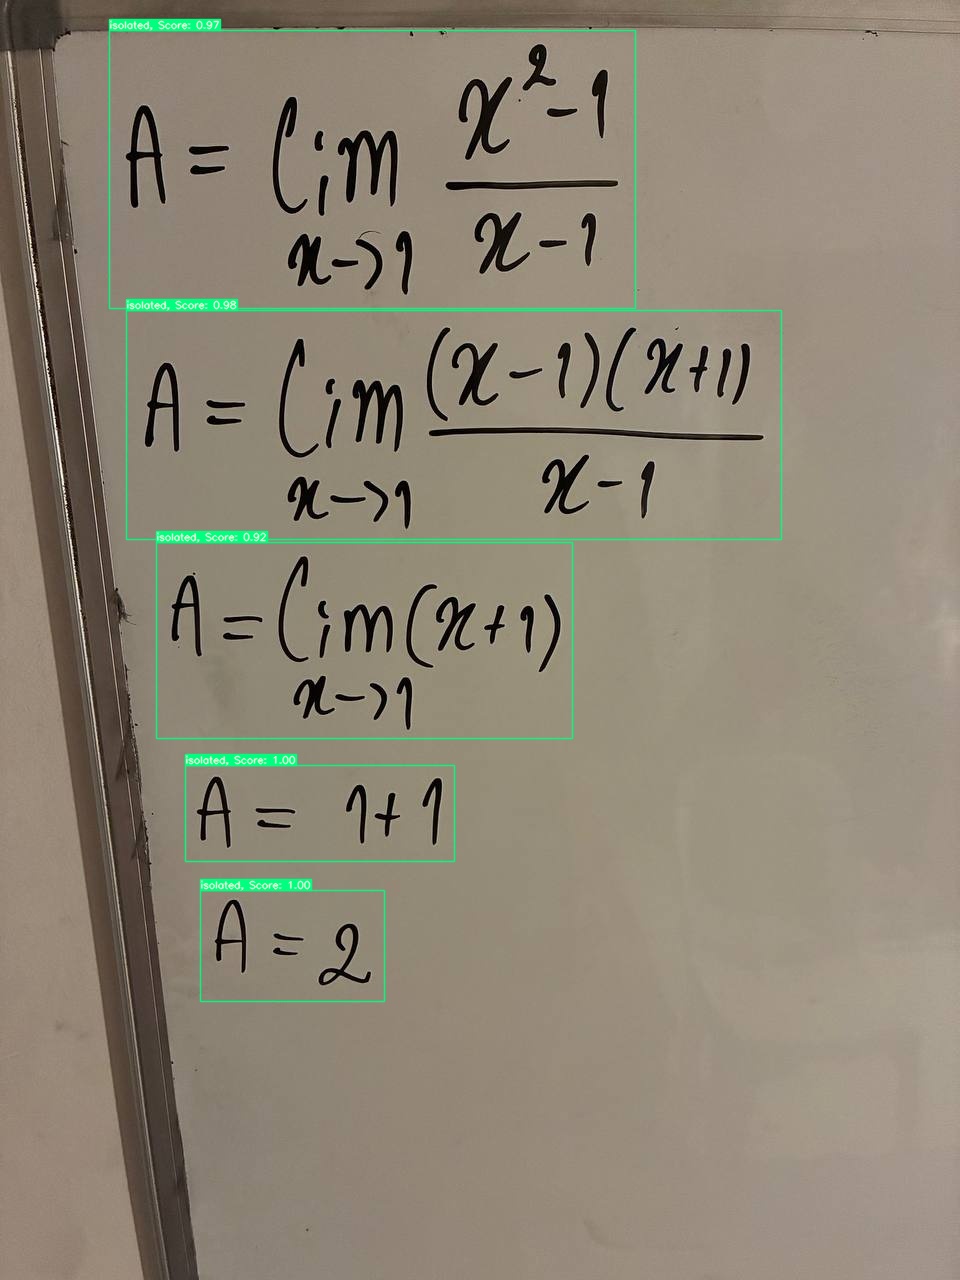 isolated, Score: 0.97
A = lim_{x->1} (x²-1)/(x-1)
isolated, Score: 0.98
A = lim_{x->1} ((x-1)(x+1))/(x-1)
isolated, Score: 0.92
A = lim_{x->1} (x+1)
isolated, Score: 1.00
A = 1+1
isolated, Score: 1.00
A = 2